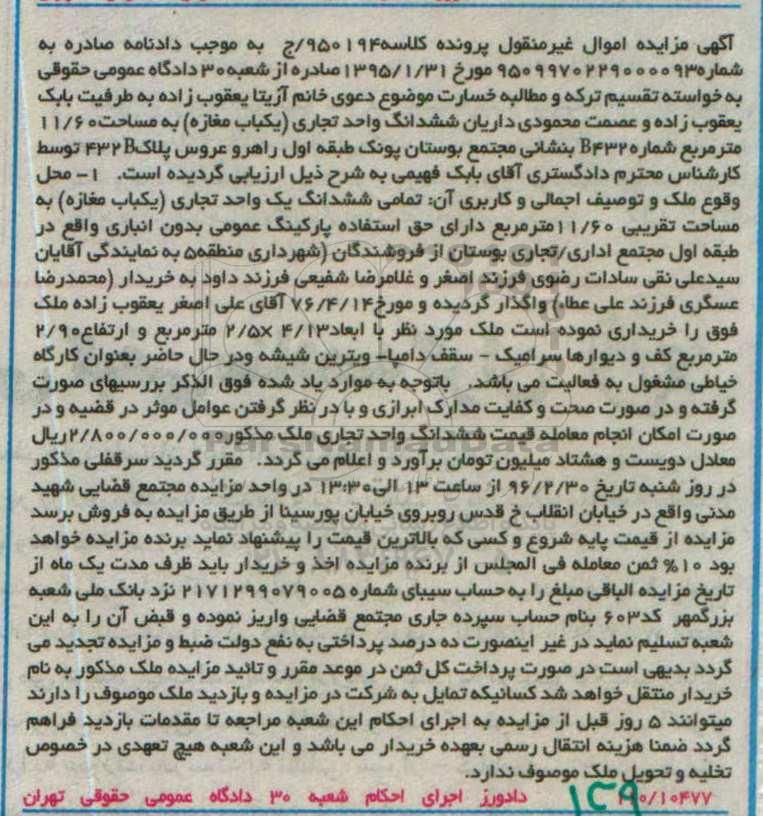 آگهی مزایده اموال غیرمنقول پرونده کلاسه۹۵۰۱۹۴/ج به موجب دادنامه صادره به
شماره۹۵۰۹۹۷۰۲۲۹۰۰۰۰۹۳ مورخ ۱۳۹۵/۱/۳۱صادره از شعبه۳۰ دادگاه عمومی حقوقی
به خواسته تقسیم ترکه و مطالبه خسارت موضوع دعوی خانم آزیتا یعقوب زاده به طرفیت بابک
یعقوب زاده و عصمت محمودی داریان ششدانگ واحد تجاری (یکباب مغازه) به مساحت۱۱/۶۰
مترمربع شماره B۴۳۲ بنشانی مجتمع بوستان پونک طبقه اول راهرو عروس پلاک۴۳۲B توسط
کارشناس محترم دادگستری آقای بابک فهیمی به شرح ذیل ارزیابی گردیده است. ۱- محل
وقوع ملک و توصیف اجمالی و کاربری آن: تمامی ششدانگ یک واحد تجاری (یکباب مغازه) به
مساحت تقریبی ۱۱/۶۰مترمربع دارای حق استفاده پارکینگ عمومی بدون انباری واقع در
طبقه اول مجتمع اداری/تجاری بوستان از فروشندگان (شهرداری منطقه۵ به نمایندگی آقایان
سیدعلی نقی سادات رضوی فرزند اصغر و غلامرضا شفیعی فرزند داود به خریدار (محمدرضا
عسگری فرزند علی عطاء) واگذار گردیده و مورخ۷۶/۴/۱۴ آقای علی اصغر یعقوب زاده ملک
فوق را خریداری نموده است ملک مورد نظر با ابعاد۴/۱۳ x۲/۵ مترمربع و ارتفاع۲/۹۰
مترمربع کف و دیوارها سرامیک - سقف دامپا- ویترین شیشه ودر حال حاضر بعنوان کارگاه
خیاطی مشغول به فعالیت می باشد. باتوجه به موارد یاد شده فوق الذکر بررسیهای صورت
گرفته و در صورت صحت و کفایت مدارک ابرازی و با در نظر گرفتن عوامل موثر در قضیه و در
صورت امکان انجام معامله قیمت ششدانگ واحد تجاری ملک مذکور۲/۸۰۰/۰۰۰/۰۰۰ریال
معادل دویست و هشتاد میلیون تومان برآورد و اعلام می گردد. مقرر گردید سرقفلی مذکور
در روز شنبه تاریخ ۹۶/۲/۳۰ از ساعت ۱۳ الی۱۳:۳۰ در واحد مزایده مجتمع قضایی شهید
مدنی واقع در خیابان انقلاب خ قدس روبروی خیابان پورسینا از طریق مزایده به فروش برسد
مزایده از قیمت پایه شروع و کسی که بالاترین قیمت را پیشنهاد نماید برنده مزایده خواهد
بود ۱۰% ثمن معامله فی المجلس از برنده مزایده اخذ و خریدار باید ظرف مدت یک ماه از
تاریخ مزایده الباقی مبلغ را به حساب سیبای شماره ۲۱۷۱۲۹۹۰۷۹۰۰۵ نزد بانک ملی شعبه
بزرگمهر کد۶۰۳ بنام حساب سپرده جاری مجتمع قضایی واریز نموده و قبض آن را به این
شعبه تسلیم نماید در غیر اینصورت ده درصد پرداختی به نفع دولت ضبط و مزایده تجدید می
گردد بدیهی است در صورت پرداخت کل ثمن در موعد مقرر و تائید مزایده ملک مذکور به نام
خریدار منتقل خواهد شد کسانیکه تمایل به شرکت در مزایده و بازدید ملک موصوف را دارند
میتوانند ۵ روز قبل از مزایده به اجرای احکام این شعبه مراجعه تا مقدمات بازدید فراهم
گردد ضمنا هزینه انتقال رسمی بعهده خریدار می باشد و این شعبه هیچ تعهدی در خصوص
تخلیه و تحویل ملک موصوف ندارد.
۱۹۰/۱۰۴۷۷ دادورز اجرای احکام شعبه ۳۰ دادگاه عمومی حقوقی تهران
ParsNamadData